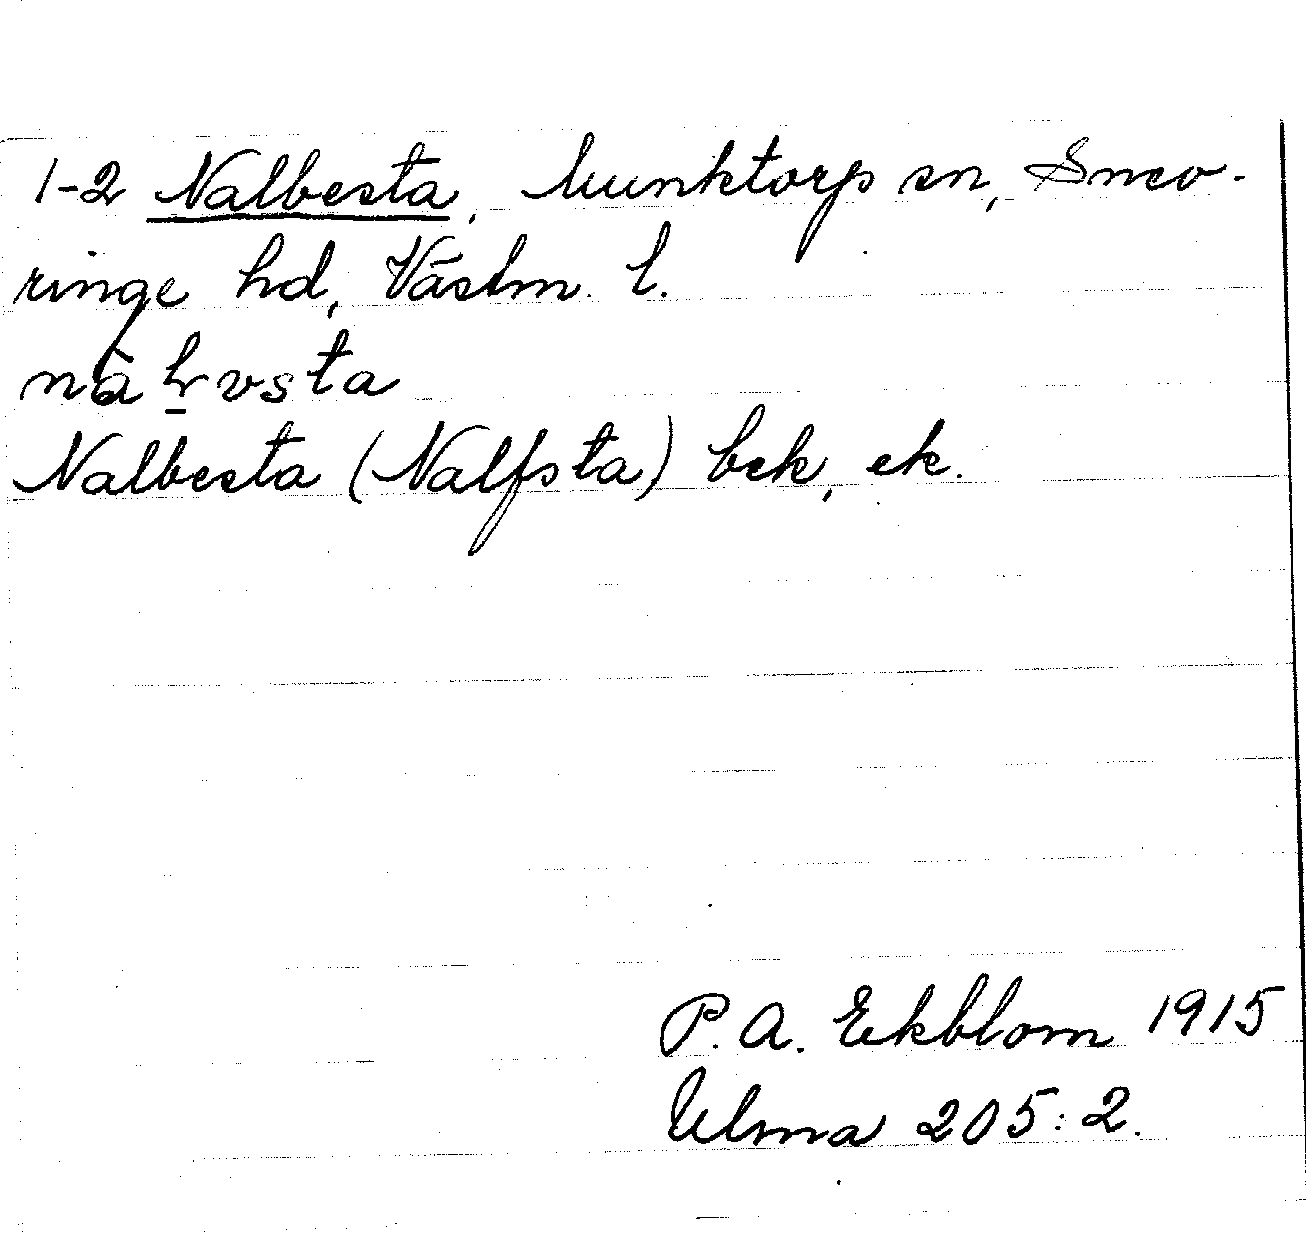 1-2 Nalbesta, Munktorp sn, Snev-
ringe hd, Västm. l.
Nalbesta (Nalfsta) bek, ek.
P. A. Ekblom 1915
Ulma 205:2.